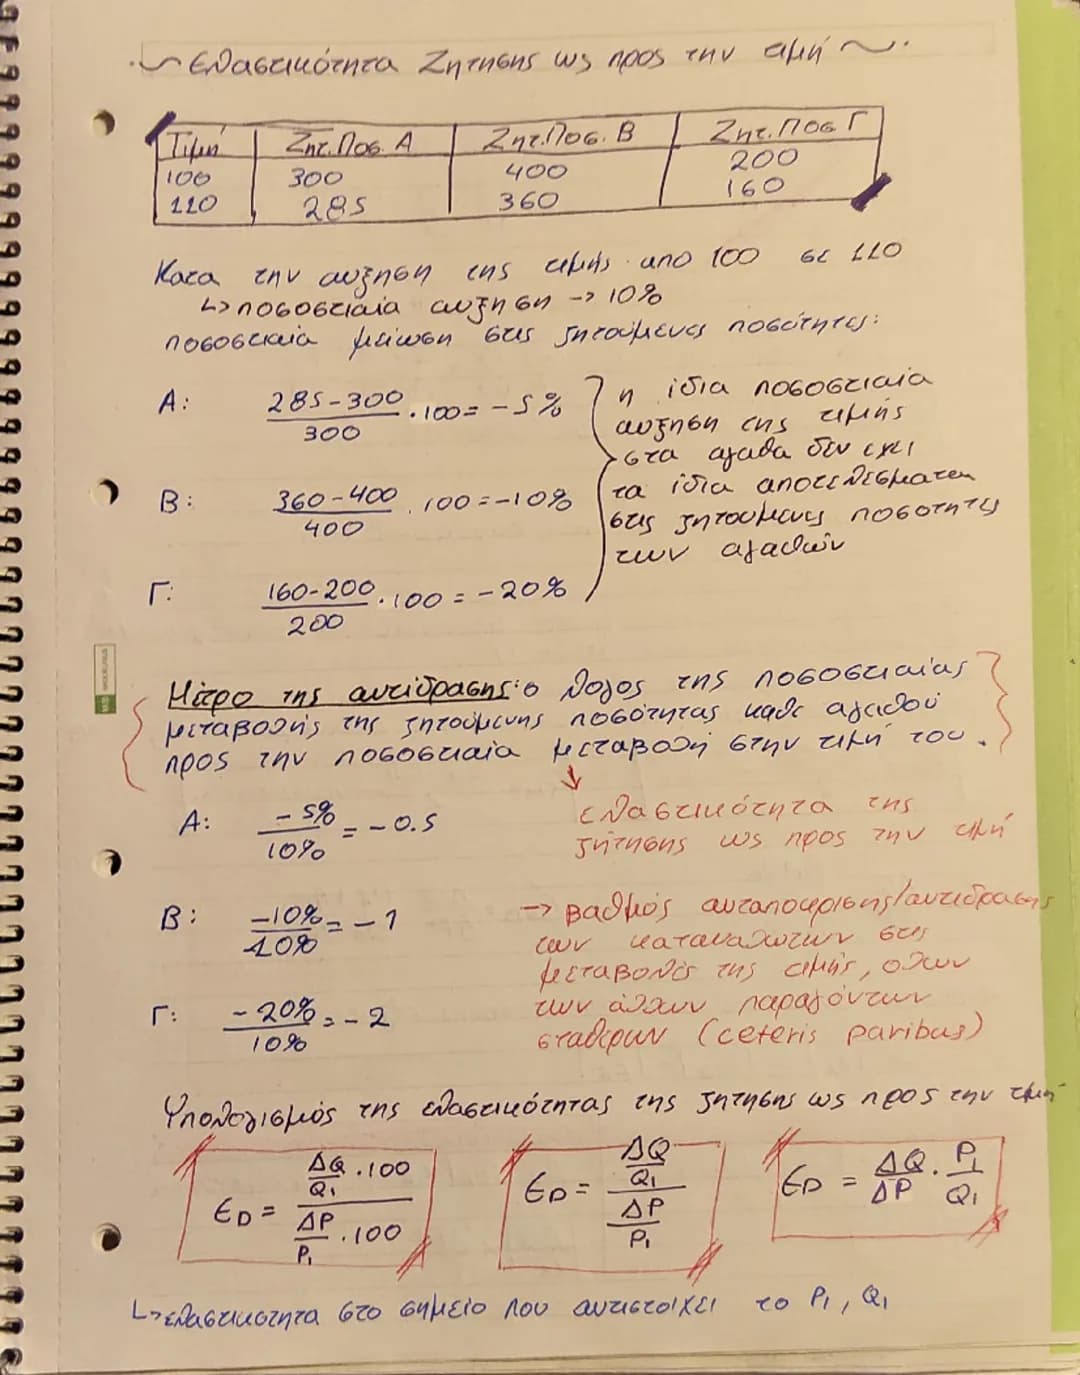 Ελαστικότητα Ζήτησης ως προς την τιμή
Τιμή Ζητ.Ποσ. Α Ζητ.Ποσ. Β Ζητ.Ποσ Γ
100 300 400 200
110 285 360 160
Κατα την αυξηση της τιμής απο 100 σε 110
↳ ποσοστιαία αυξηση -> 10%
ποσοστιαια μείωση στις ζητούμενες ποσότητες:
Α: (285-300)/300 · 100 = -5%
Β: (360-400)/400 · 100 = -10%
Γ: (160-200)/200 · 100 = -20%
η ίδια ποσοστιαια
αυξηση της τιμής
στα αγαθα δεν εχει
τα ίδια αποτελέσματα
στις ζητούμενες ποσοτητες
των αγαθών
Μέτρο της αντίδρασης: ο λόγος της ποσοστιαίας
μεταβολής της ζητούμενης ποσότητας καθε αγαθού
προς την ποσοστιαια μεταβολή στην τιμή του.
↓
ελαστικότητα της
ζήτησης ως προς την τιμή
Α: -5%/10% = -0.5
Β: -10%/10% = -1
Γ: -20%/10% = -2
-> βαθμός ανταποκρισης/αντιδρασης
των καταναλωτών στις
μεταβολές της τιμής, ολων
των άλλων παραγόντων
σταθερων (ceteris paribus)
Υπολογισμός της ελαστικότητας της ζητησης ως προς την τιμή
ЄD = (ΔQ/Q₁ · 100)/(ΔP/P₁ · 100)
ЄD = (ΔQ/Q₁)/(ΔP/P₁)
ЄD = ΔQ/ΔP · P₁/Q₁
↳ ελαστικοτητα στο σημείο που αντιστοιχει το P₁, Q₁